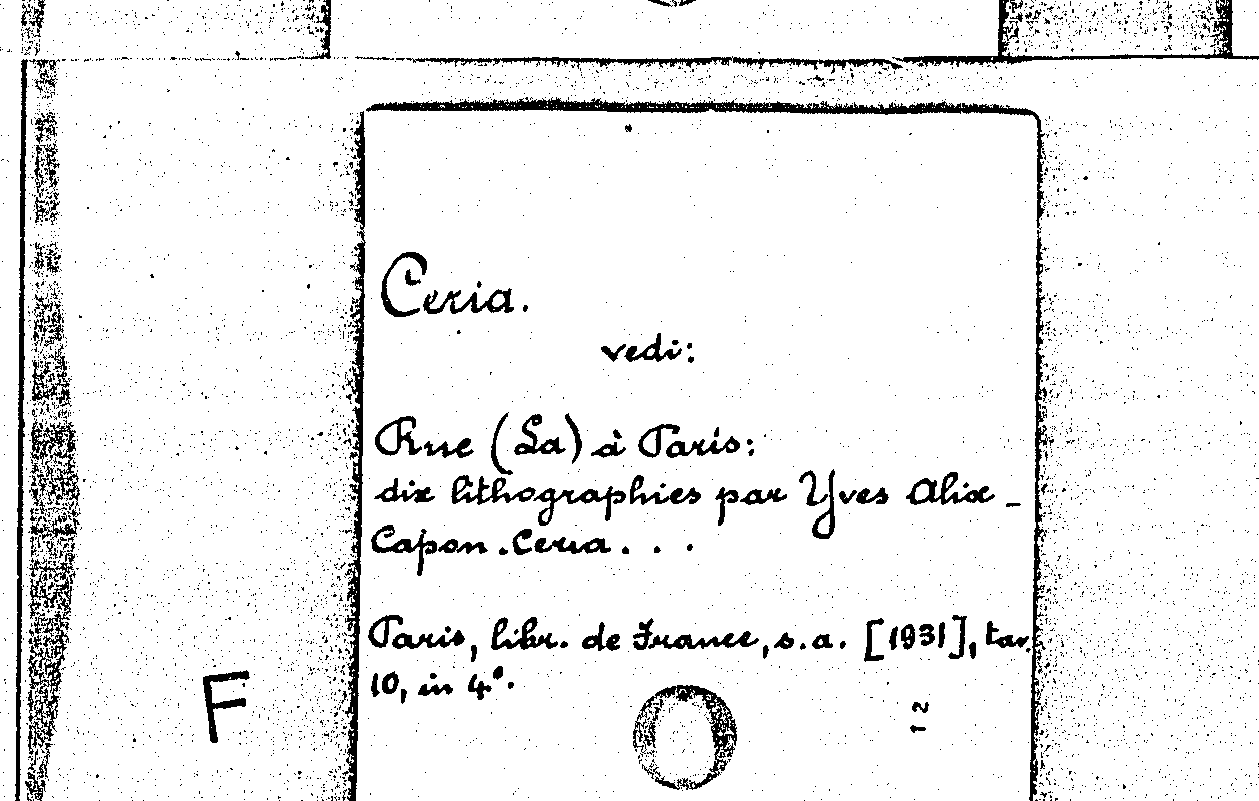 Ceria.
vedi:
Rue (La) à Paris:
dix lithographies par Yves Alix -
Capon. Ceria. . .
Paris, libr. de France, s.a. [1931], tav.
10, in 4°.
F
12